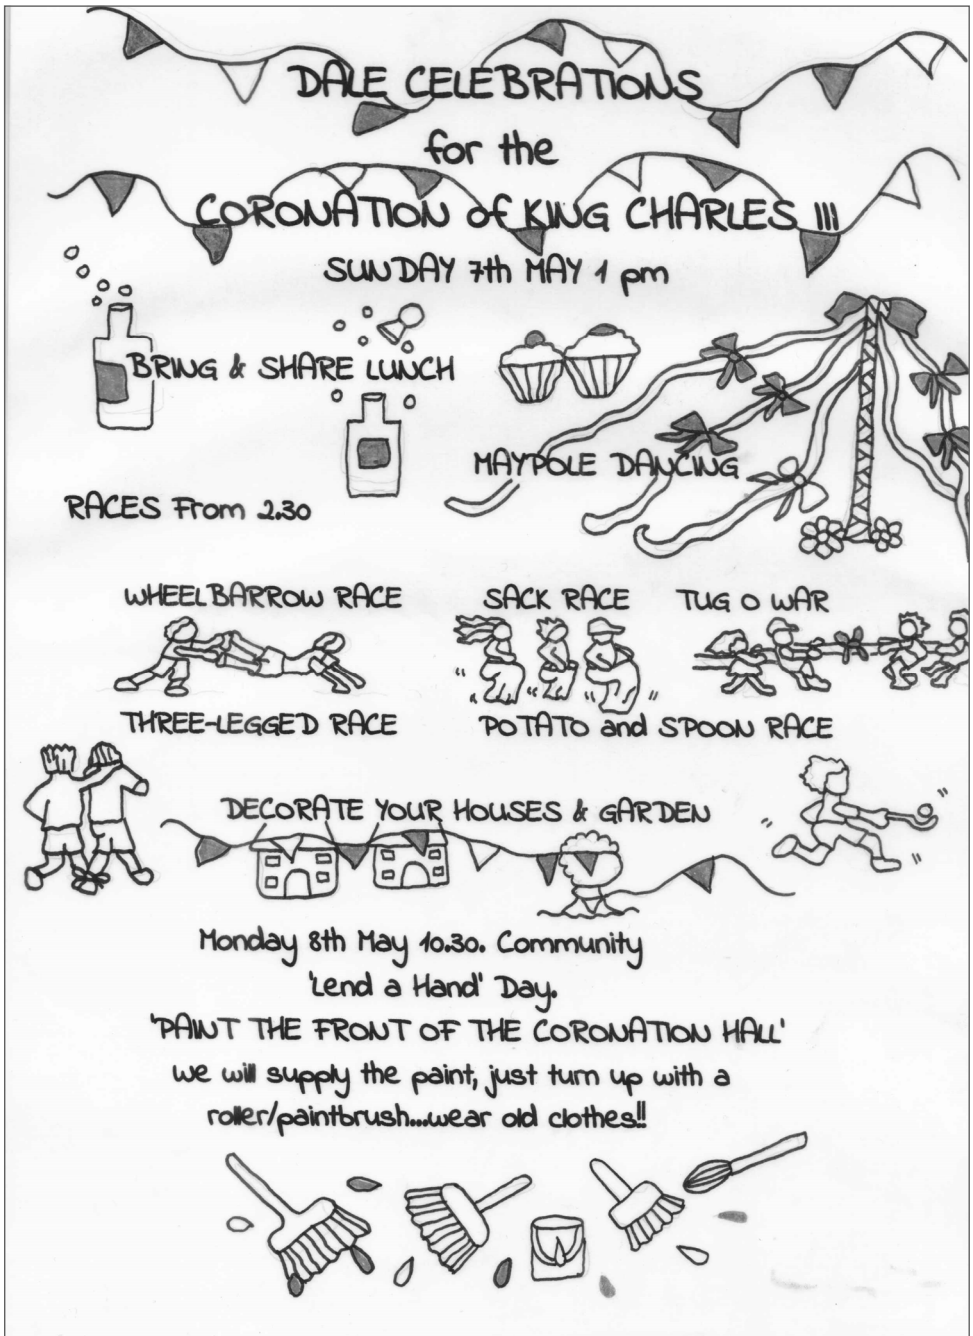 DALE CELEBRATIONS
for the
CORONATION of KING CHARLES III
SUNDAY 7th MAY 1 pm
BRING & SHARE LUNCH
MAYPOLE DANCING
RACES From 2.30
WHEELBARROW RACE
SACK RACE
TUG O WAR
THREE-LEGGED RACE
POTATO and SPOON RACE
DECORATE YOUR HOUSES & GARDEN
Monday 8th May 10.30. Community
'Lend a Hand' Day.
'PAINT THE FRONT OF THE CORONATION HALL'
we will supply the paint, just turn up with a
roller/paintbrush...wear old clothes!!